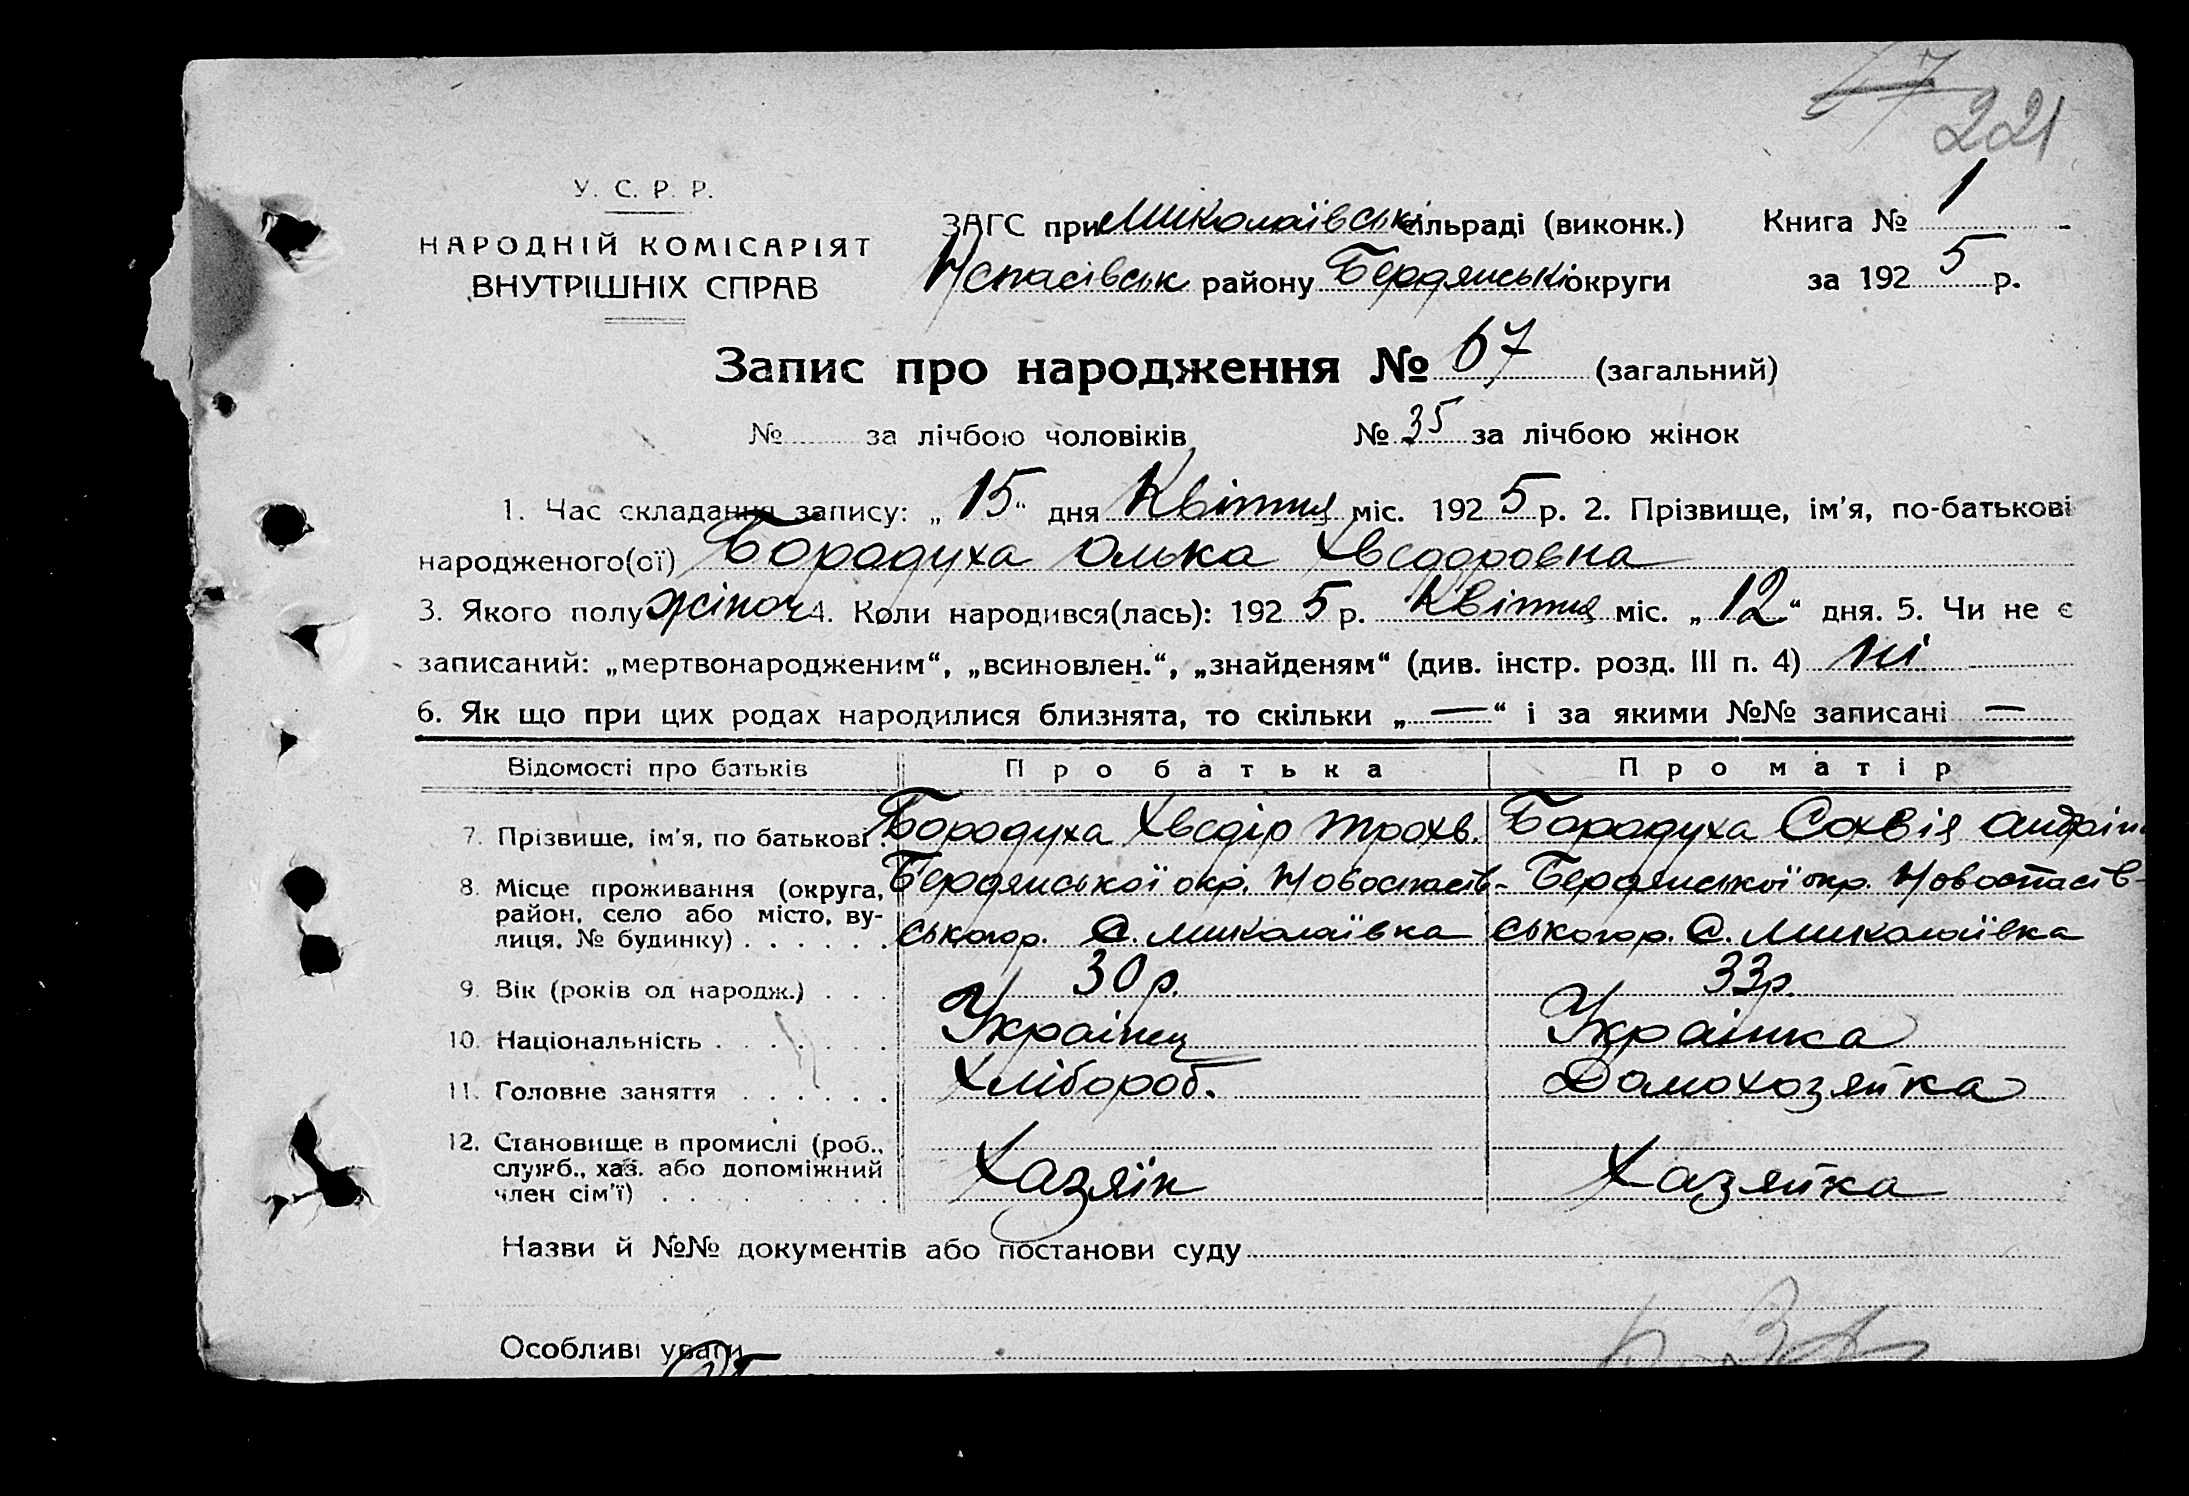 67
221
У. С. Р. Р.
НАРОДНІЙ КОМІСАРІЯТ
ВНУТРІШНІХ СПРАВ
ЗАГС при Миколаївськ сільраді (виконк.) Книга № 1
Нспасівськ району Бердянські округи за 192 5 р.
Запис про народження № 67 (загальний)
№ за лічбою чоловіків № 35 за лічбою жінок
1. Час складання запису: „ 15 “ дня Квітня міс. 192 5 р. 2. Прізвище, ім'я, по-батькові
народженого(ої) Бородуха Олька Хведоровна
3. Якого полу жіноч 4. Коли народився(лась): 192 5 р. Квітня міс. „ 12 “ дня. 5. Чи не є
записаний: „мертвонародженим“, „всиновлен.“, „знайденям“ (див. інстр. розд. III п. 4) ні
6. Як що при цих родах народилися близнята, то скільки „ — “ і за якими №№ записані —
Відомості про батьків Про батька Про матір
7. Прізвище, ім'я, по батькові . Бородуха Хведір Трохв. Бородуха Сохвія Андрін
8. Місце проживання (округа, Бердянської окр. Новоспасів- Бердянської окр. Новоспасів-
район, село або місто, ву-
лиця, № будинку) . . . . . . ського р. С. Миколаївка ського р. С. Миколаївка
9. Вік (років од народж.) . . . 30 р. 33 р.
10. Національність . . . . . . . Українец Українка
11. Головне заняття . . . . . . Хлібороб. Домохозяйка
12. Становище в промислі (роб.,
служб., хаз. або допоміжний Хазяїн Хазяйка
член сім'ї) . . . . . . . . .
Назви й №№ документів або постанови суду
Особливі уваги